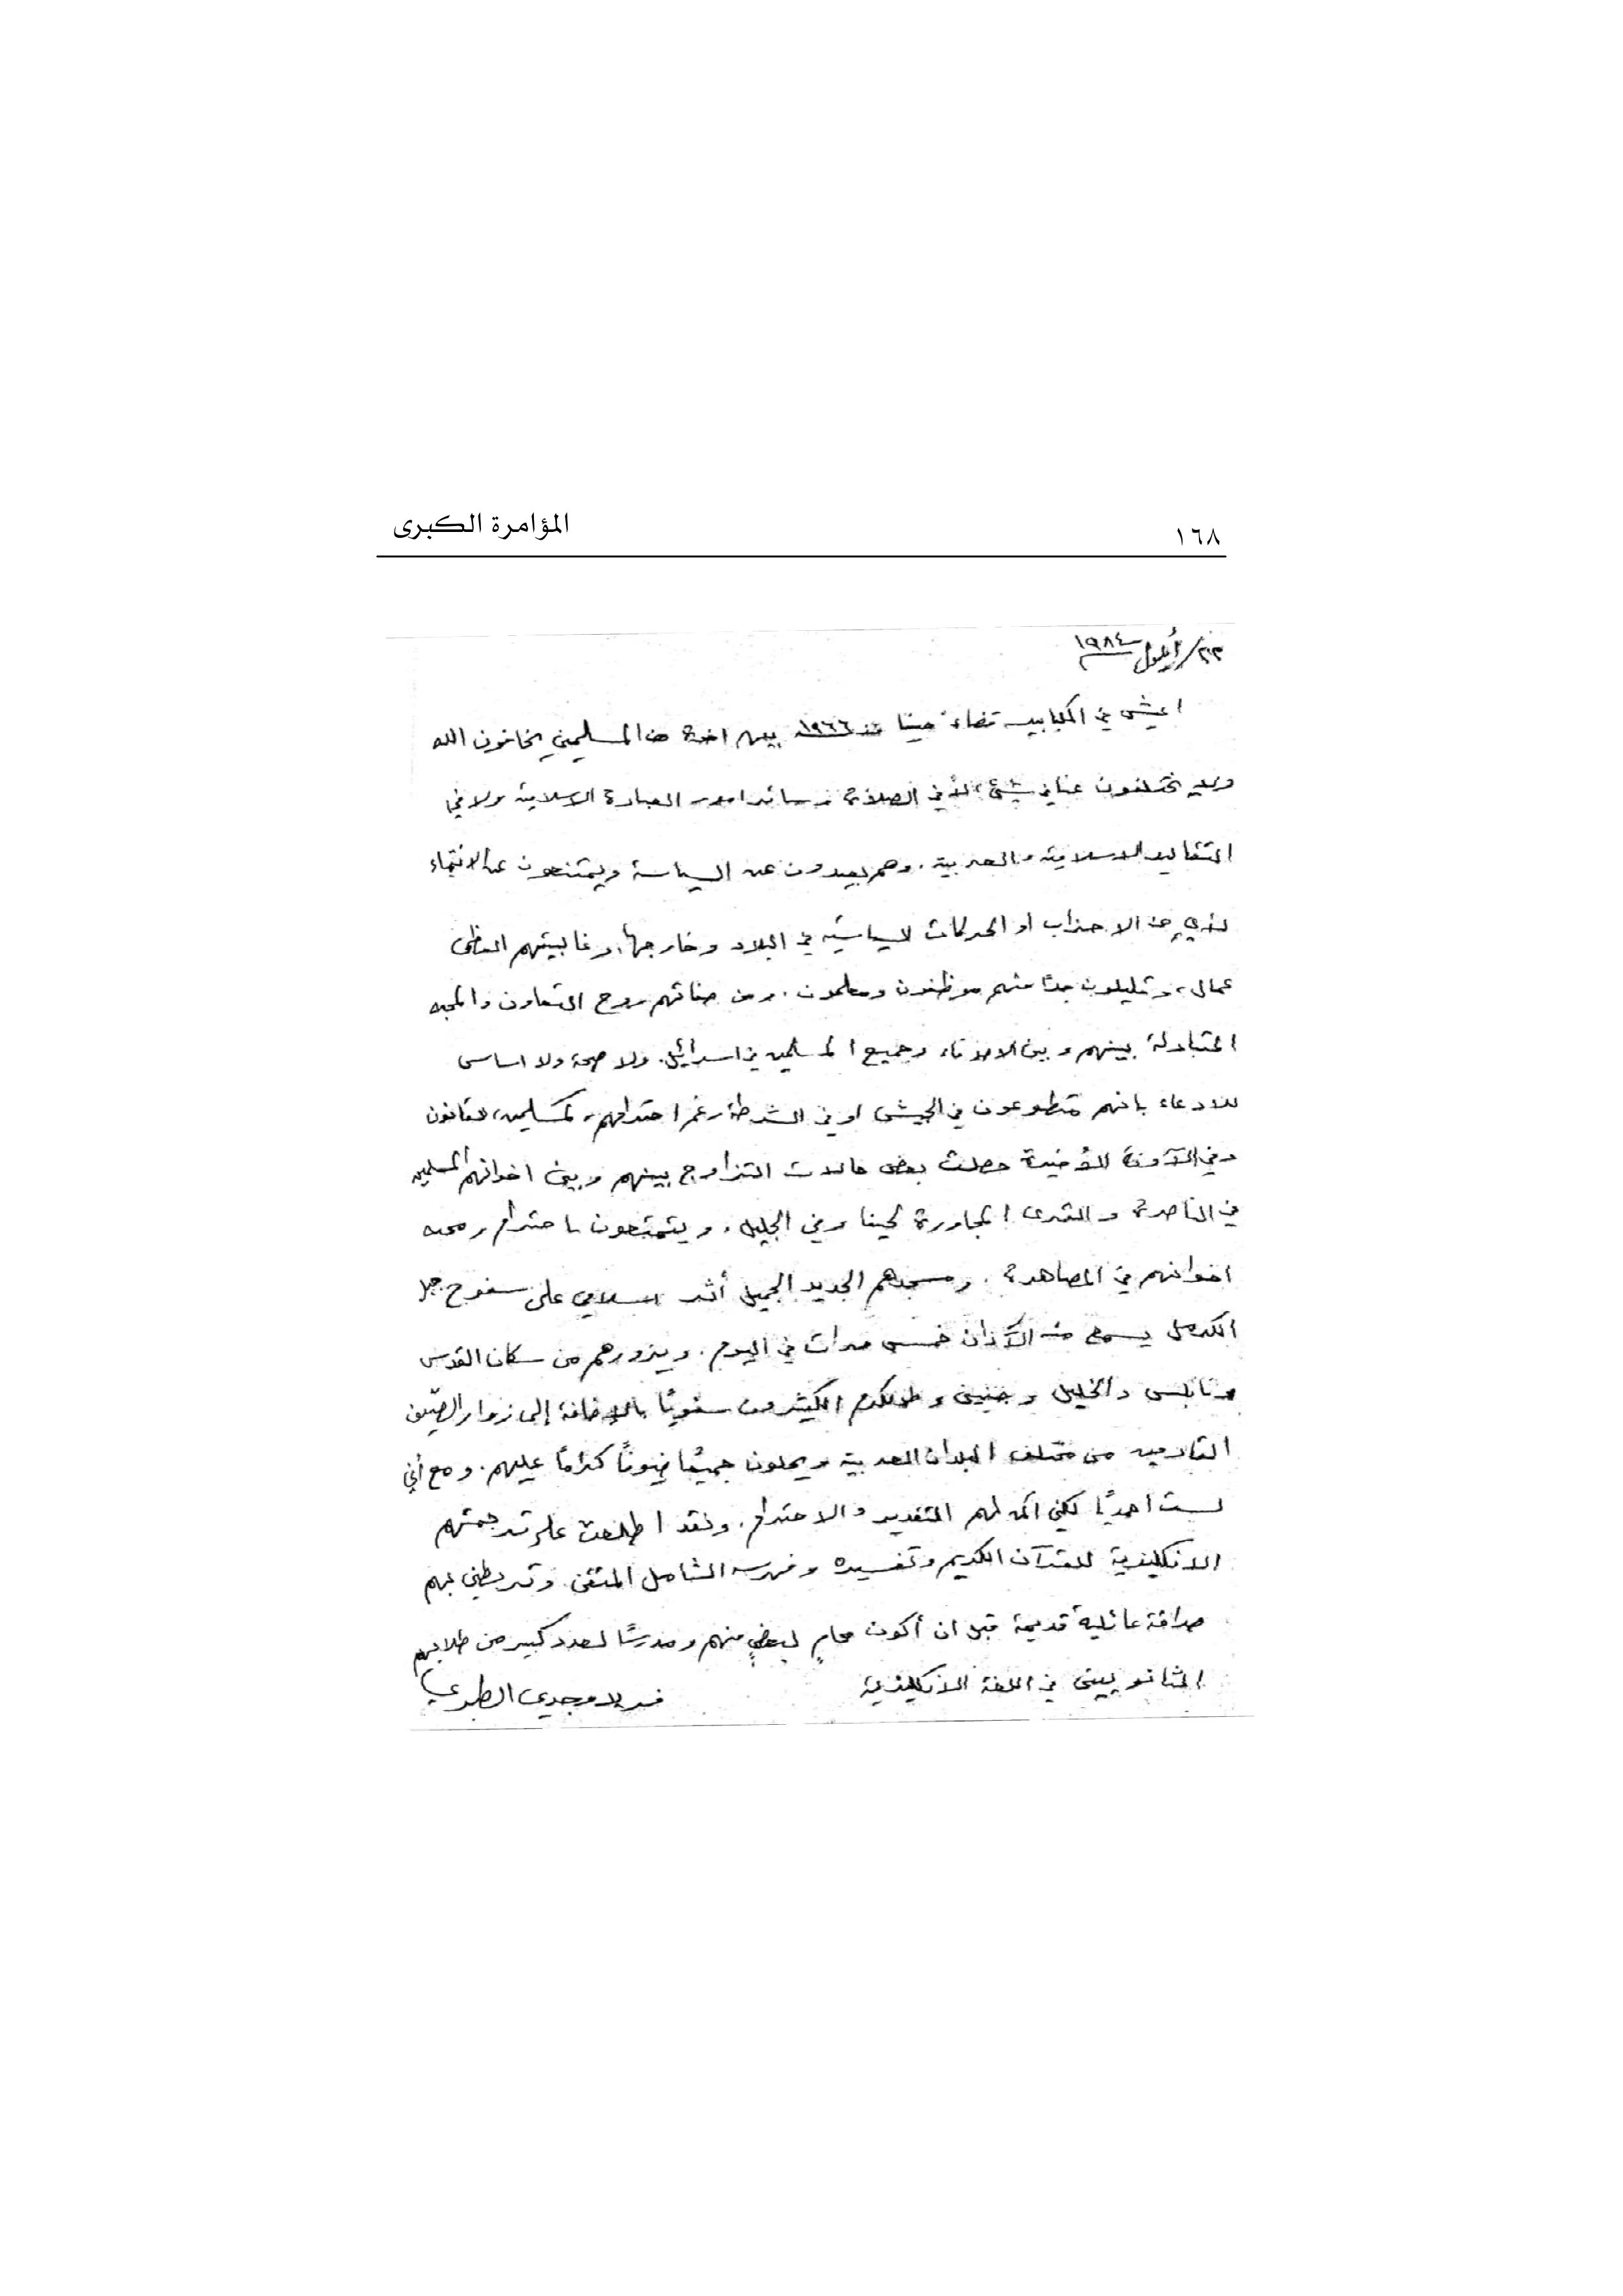 ١٦٨
المؤامرة الكبرى
٢٣/أيلول ١٩٨٤
اعيش في الكبابير قضاء حيفا منذ ١٩٦٦ بين اخوة من المسلمين يخافون الله
ولا يختلفون عنا في شيء، لا في الصلاة وسائر امور العبادة الاسلامية ولا في
التقاليد الاسلامية والعربية. وهم بعيدون عن السياسة ويمتنعون عن الانتماء
لأي من الاحزاب او الحركات السياسية في البلاد وخارجها، وغالبيتهم العظمى
عمال، وقليلون جدًا منهم موظفون ومعلمون. ومن صفاتهم روح التعاون والمحبة
المتبادلة بينهم وبين وجميع المسلمين في اسرائيل. ولا صحة ولا اساس
للادعاء بانهم متطوعون في الجيش او في الشرطة رغم احترامهم، كمسلمين، للقانون
وفي الآونة الأخيرة حصلت بعض حالات التزاوج بينهم وبين اخوانهم المسلمين
في الناصرة والقرى المجاورة لحيفا وفي الجليل. ويتمتعون باحترام ومحبة
اخوانهم في المصاهرة. ومسجدهم الجديد الجميل أثر اسلامي على سفوح جبل
الكرمل يسمع منه الآذان خمس مرات في اليوم. ويزورهم من سكان القدس
ونابلس والخليل وجنين وطولكرم الكثيرون سنويًا بالإضافة إلى زوار الصيف
القادمين من مختلف البلدان العربية ويحلون جميعًا ضيوفًا كرامًا عليهم. ومع أني
لست احمديًا لكني اكن لهم التقدير والاحترام. ولقد اطلعت على ترجمتهم
الانكليزية للقرآن الكريم وتفسيره وفهرسه الشامل المتقن وتربطني بهم
صداقة عائلية قديمة قبل ان أكون محامٍ لبعضٍ منهم ومدرسًا لعدد كبير من طلابهم
الثانويين في اللغة الانكليزية
فريد وجدي الطبري